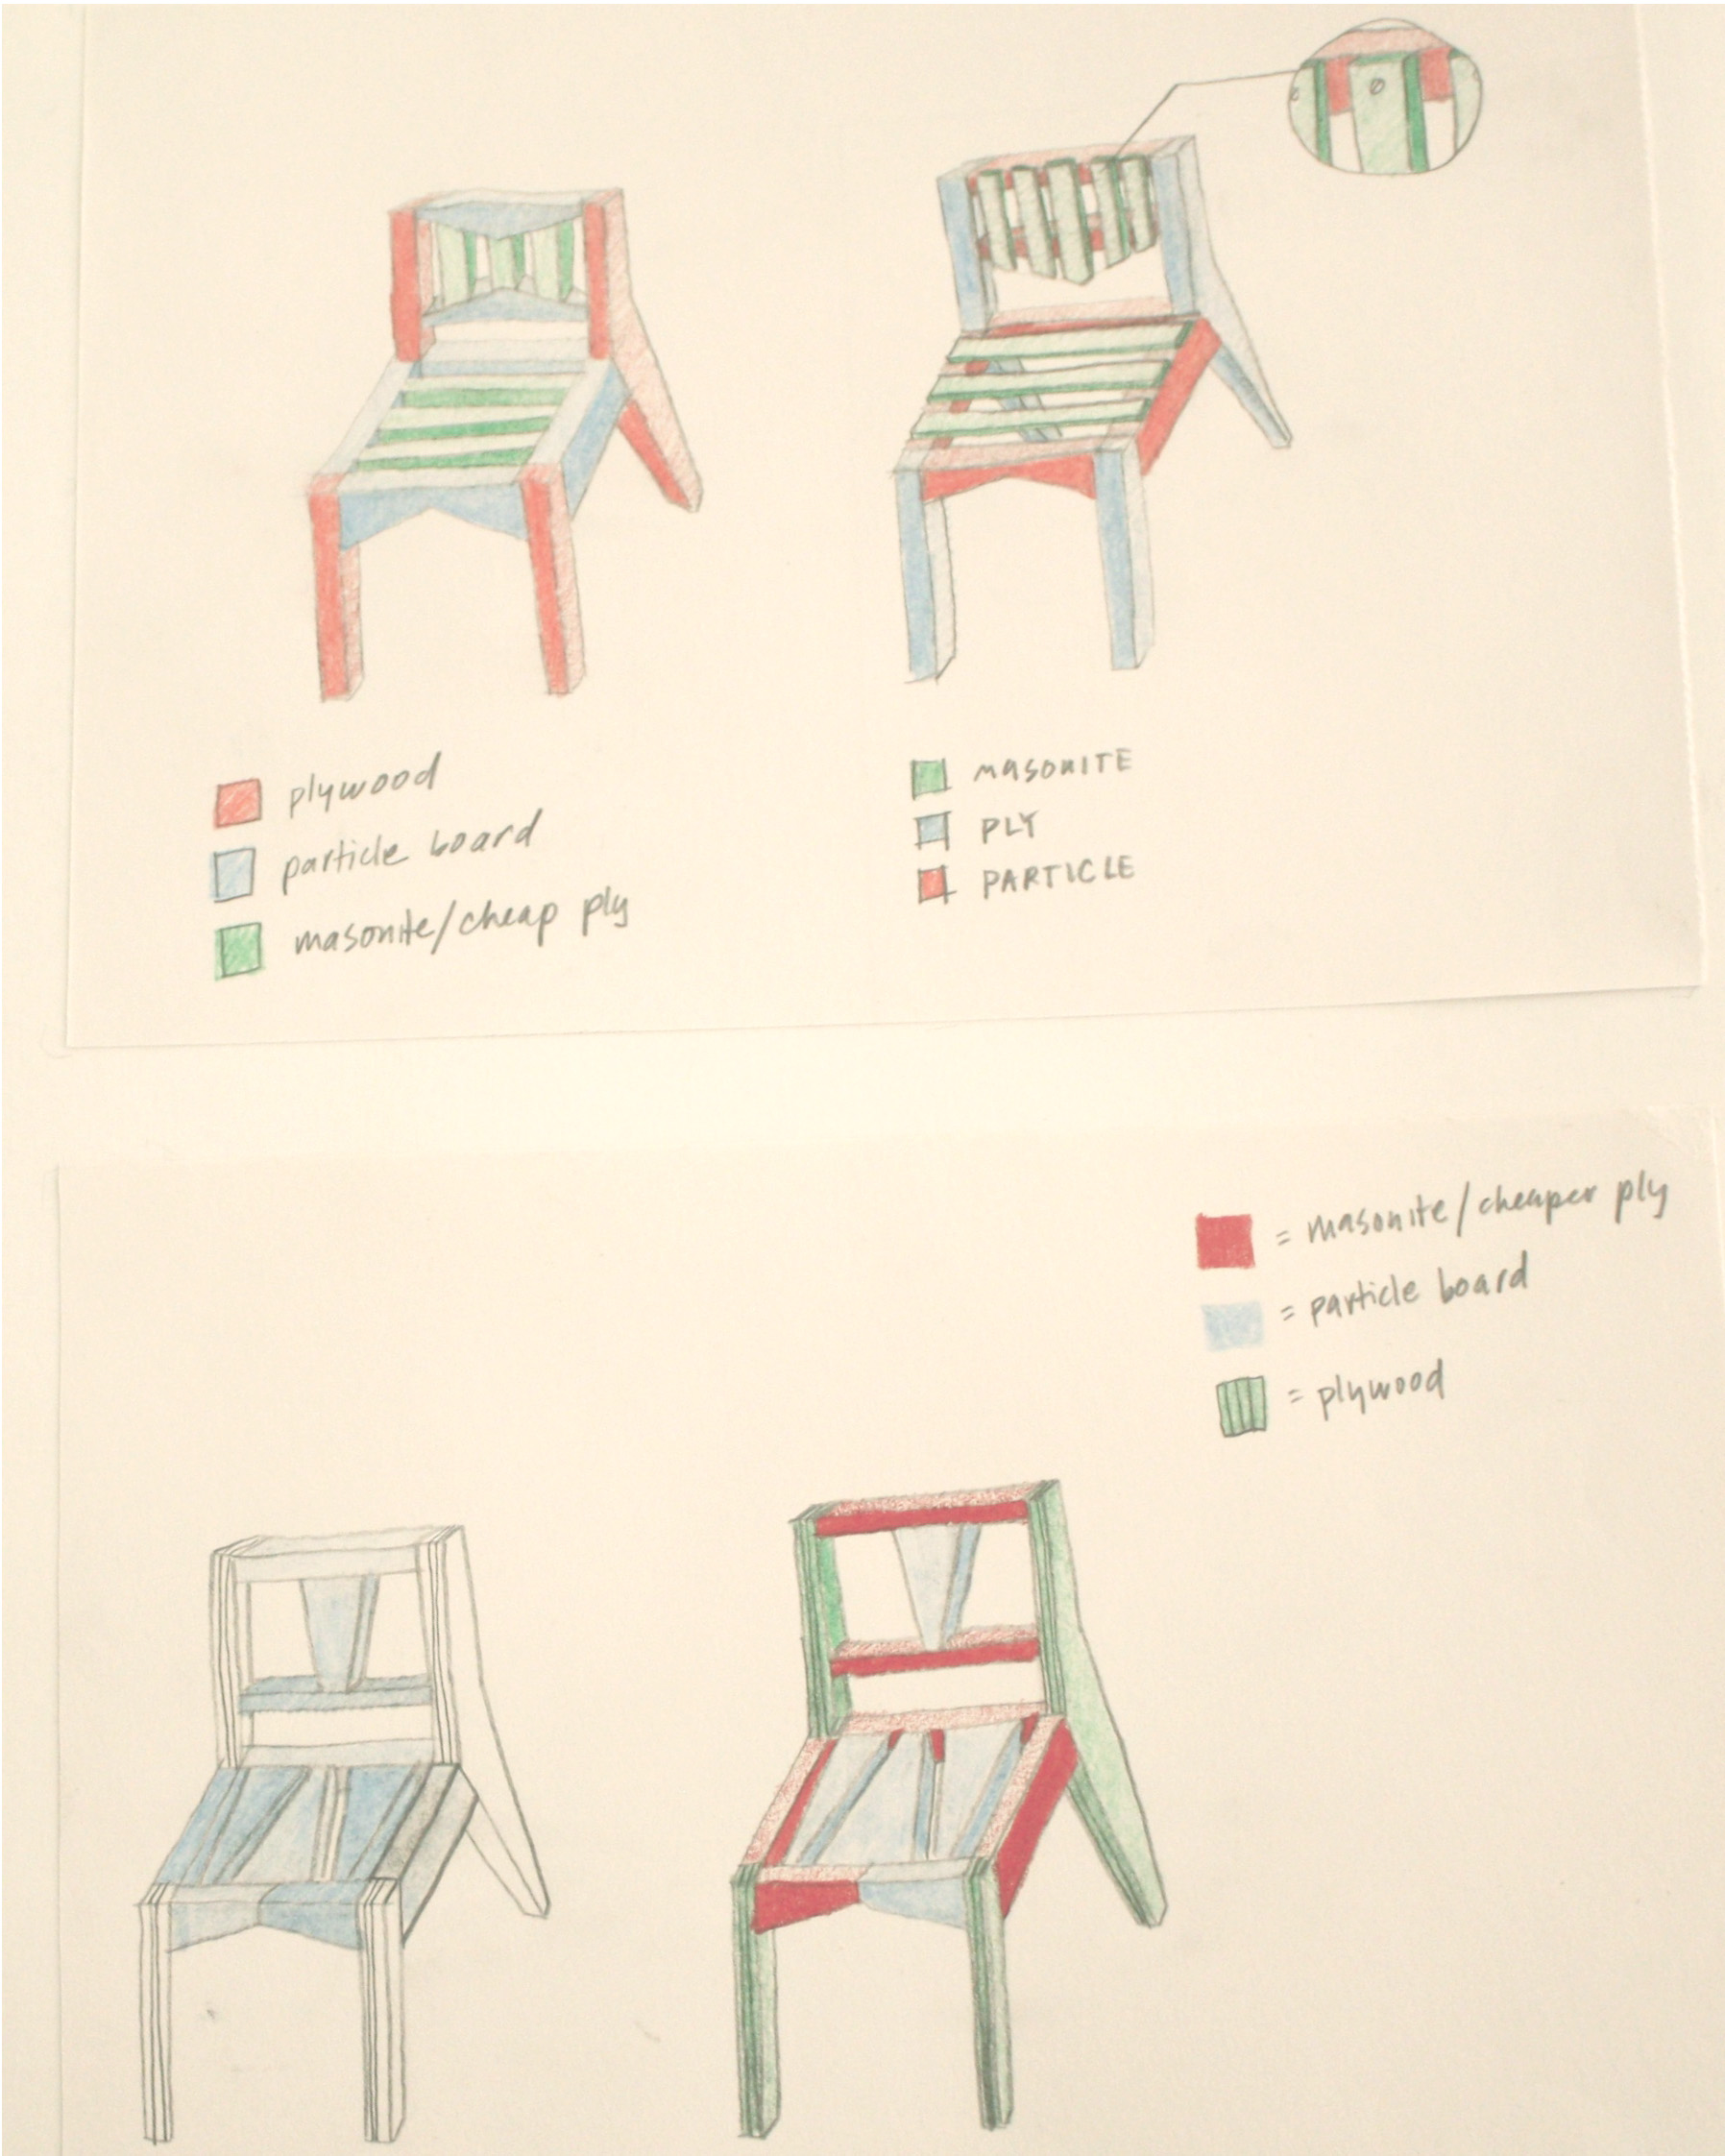 plywood
particle board
masonite/cheap ply
MASONITE
PLY
PARTICLE
= masonite/cheaper ply
= particle board
= plywood